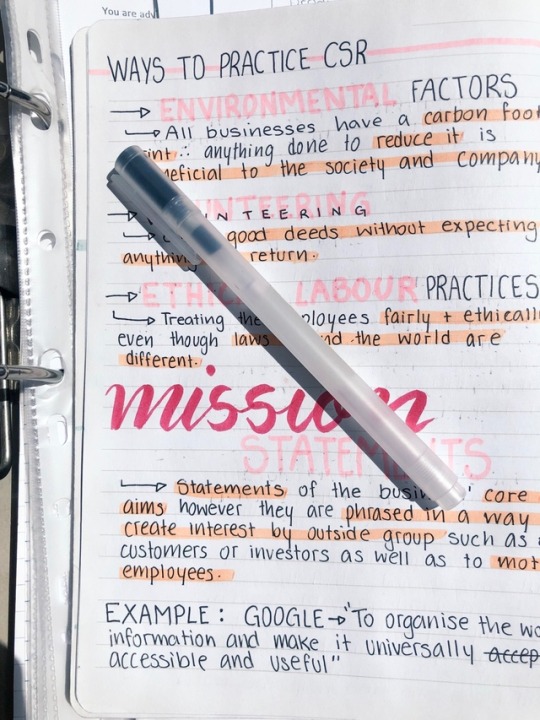 You are adv
WAYS TO PRACTICE CSR
→ ENVIRONMENTAL FACTORS
↳ All businesses have a carbon foot
int ∴ anything done to reduce it is
neficial to the society and company
→ UNTEERING
good deeds without expecting
anything return.
→ ETHIC LABOUR PRACTICES
↳ Treating the ployees fairly + ethicall
even though laws nd the world are
different.
mission
STATEMENTS
↳ Statements of the busin ' core
aims however they are phrased in a way
create interest by outside group such as
customers or investors as well as to mot
employees.
EXAMPLE : GOOGLE → "To organise the wo
information and make it universally accep
accessible and useful"